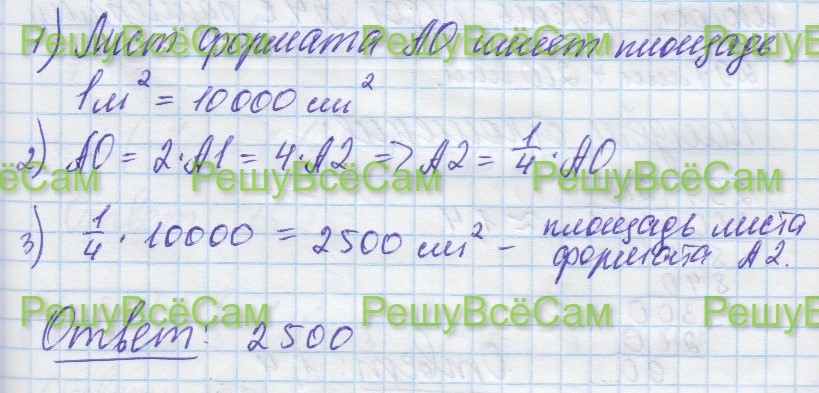 1) Лист формата А0 имеет площадь
1 м² = 10000 см²
2) А0 = 2·А1 = 4·А2 => А2 = 1/4·А0
3) 1/4 · 10000 = 2500 см² – площадь листа
формата А2.
Ответ: 2500
РешуВсёСам РешуВсёСам РешуВ
сёСам РешуВсёСам РешуВсёСам
РешуВсёСам РешуВсёСам РешуВ